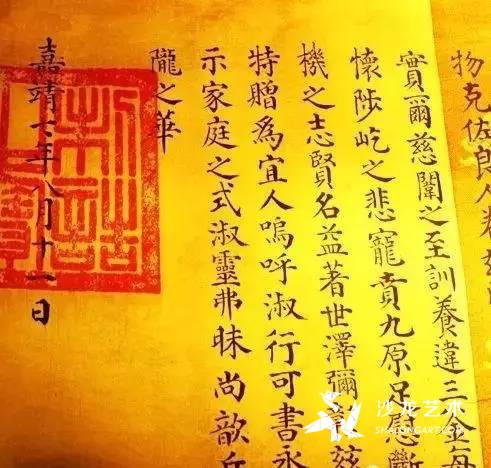 物克佐良人
實爾慈闈之至訓養違三釜每
懷陟屺之悲寵賁九原足慰斷
機之志賢名益著世澤彌茲
特贈為宜人嗚呼淑行可書永
示家庭之式淑靈弗昧尚歆丘
隴之華
嘉靖七年八月十一日
沙龙艺术
SHALONGART.COM